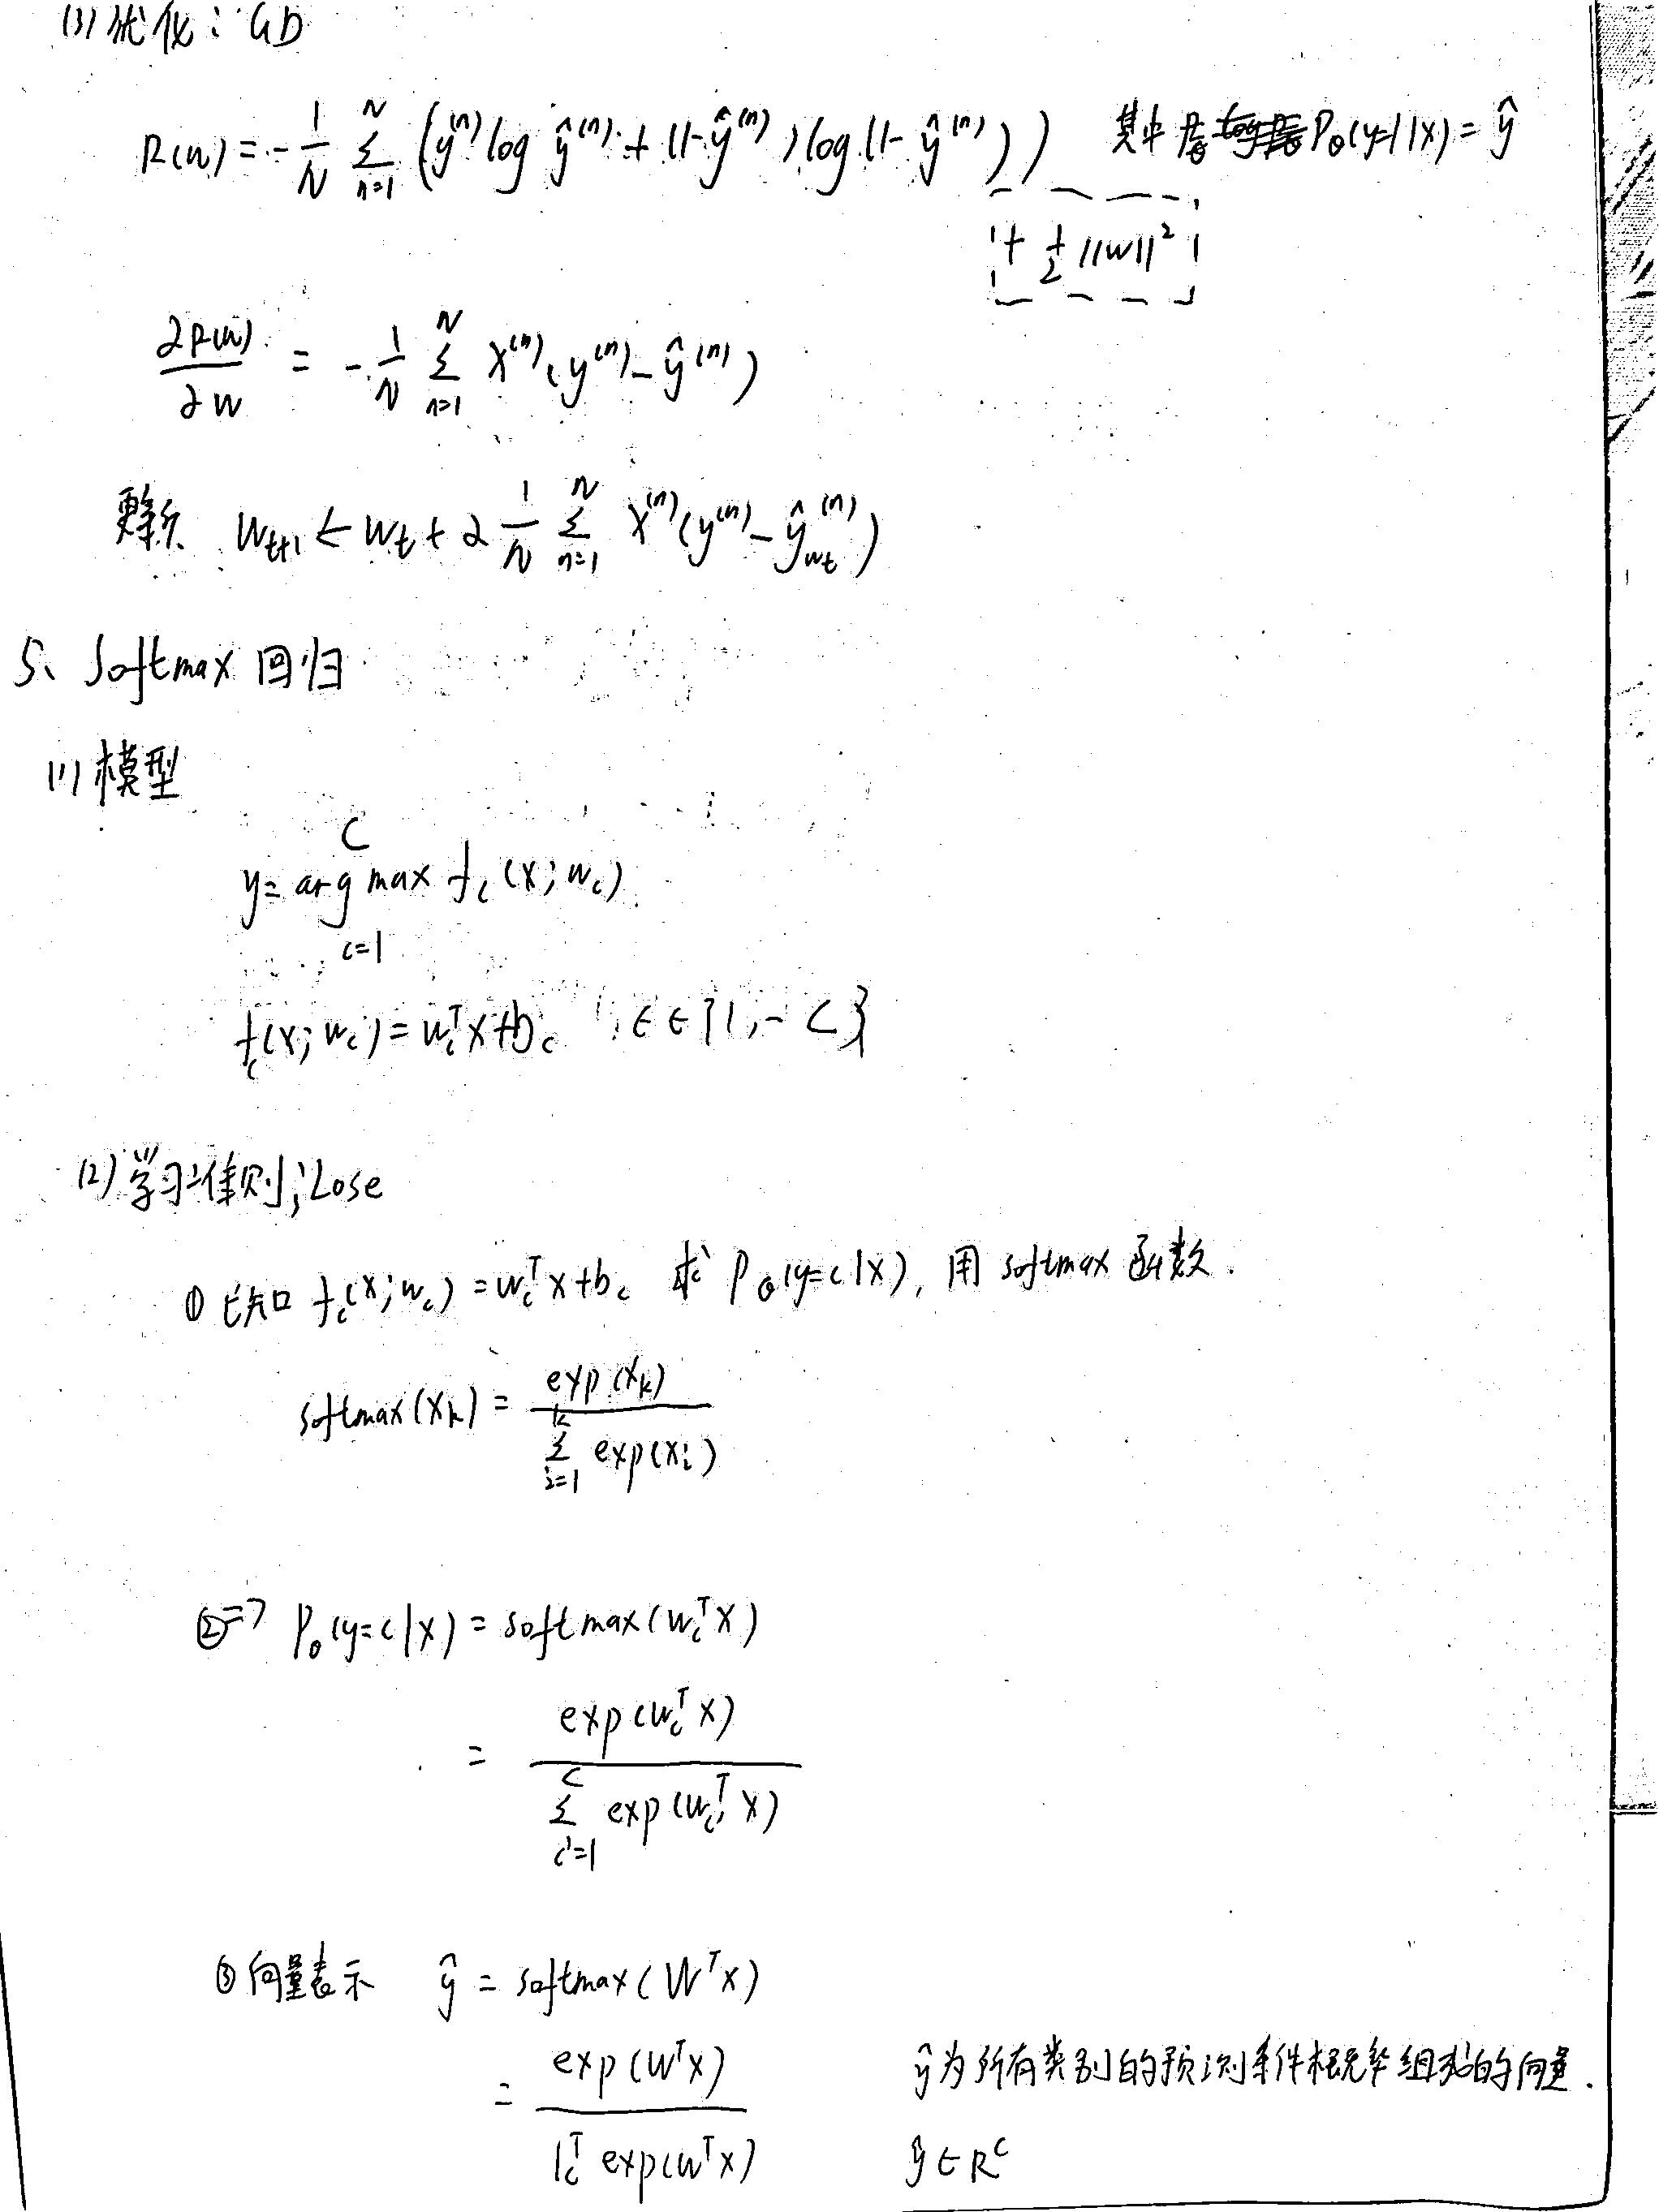 (3) 优化：GD
R(w) = -1/N Σ_{n=1}^{N} (ŷ^(n) log ŷ^(n) + (1-ŷ^(n)) log (1-ŷ^(n))) 其中 P_θ(y=1|x) = ŷ
+ 1/2 ||w||²
∂R(w)/∂w = -1/N Σ_{n=1}^{N} x^(n) (y^(n) - ŷ^(n))
更新 w_{t+1} ← w_t + α 1/N Σ_{n=1}^{N} x^(n) (y^(n) - ŷ_{w_t}^(n))
5、Softmax 回归
(1) 模型
y = arg max_{c=1}^{C} f_c(x; w_c)
f_c(x; w_c) = w_c^T x + b_c , c ∈ {1, - C}
(2) 学习准则；Lose
① 已知 f_c(x; w_c) = w_c^T x + b_c 求 P_θ(y=c|x), 用 softmax 函数.
softmax(x_k) = exp(x_k) / Σ_{i=1}^{k} exp(x_i)
② => P_θ(y=c|x) = softmax(w_c^T x)
= exp(w_c^T x) / Σ_{c'=1}^{C} exp(w_{c'}^T x)
③ 向量表示 ŷ = softmax(W^T x)
= exp(W^T x) / 1_c^T exp(W^T x) ŷ为所有类别的预测条件概率组成的向量.
ŷ ∈ R^C